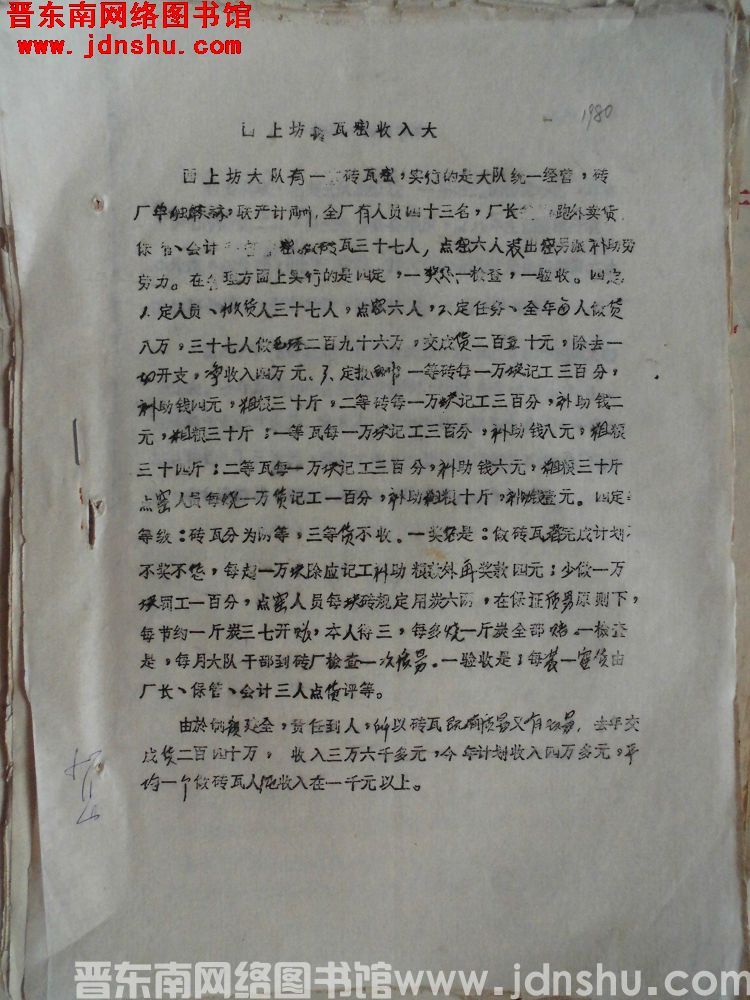 晋东南网络图书馆
www.jdnshu.com
1980
西上坊砖瓦窑收入大
西上坊大队有一砖瓦窑，实行的是大队统一经营，砖
厂单独，联产计酬，全厂有人员四十三名，厂长跑外卖货
保管、会计砖瓦三十七人，点窑六人装出窑另派补助劳
劳力。在管理方面上实行的是四定，一奖惩、一检查，一验收。四定
1.定人员、做货人三十七人，点窑六人，2.定任务、全年每人做货
八万，三十七人做毛坯二百九十六万，交成货二百五十元，除去一
切开支，净收入四万元、3、定报酬一等砖每一万块记工三百分，
补助钱四元，粗粮三十斤，二等砖每一万块记工三百分，补助钱二
元，粗粮三十斤；一等瓦每一万块记工三百分，补助钱八元，粗粮
三十四斤；二等瓦每一万块记工三百分，补助钱六元，粗粮三十斤
点窑人员每烧一万货记工一百分，补助粗粮十斤，补钱壹元。四定
等级：砖瓦分为两等，三等货不收。一奖惩是：做砖瓦若完成计划
不奖不惩，每超一万块除应记工补助粮款外再奖款四元；少做一万
块罚工一百分，点窑人员每块砖规定用炭六两，在保证质量原则下，
每节约一斤炭三七开，本人得三，每多烧一斤炭全部赔。一检查
是，每月大队干部到砖厂检查一次质量。一验收是：每装一窑货由
厂长、保管、会计三人点货评等。
由於制度健全，责任到人，所以砖瓦既有质量又有数量，去年交
成货二百四十万，收入三万六千多元，今年计划收入四万多元，平
均一个做砖瓦人纯收入在一千元以上。
晋东南网络图书馆www.jdnshu.com